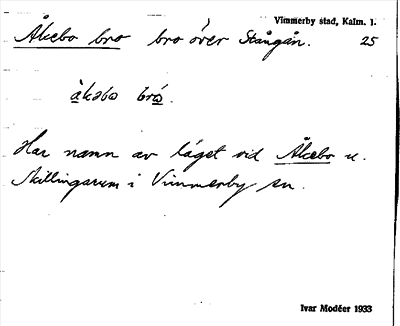 Vimmerby stad, Kalm. l.
Åkebo bro bro över Stångån. 25
åkəbo bro.
Har namn av läget vid Åkebo u.
Skillingarum i Vimmerby sn.
Ivar Modéer 1933